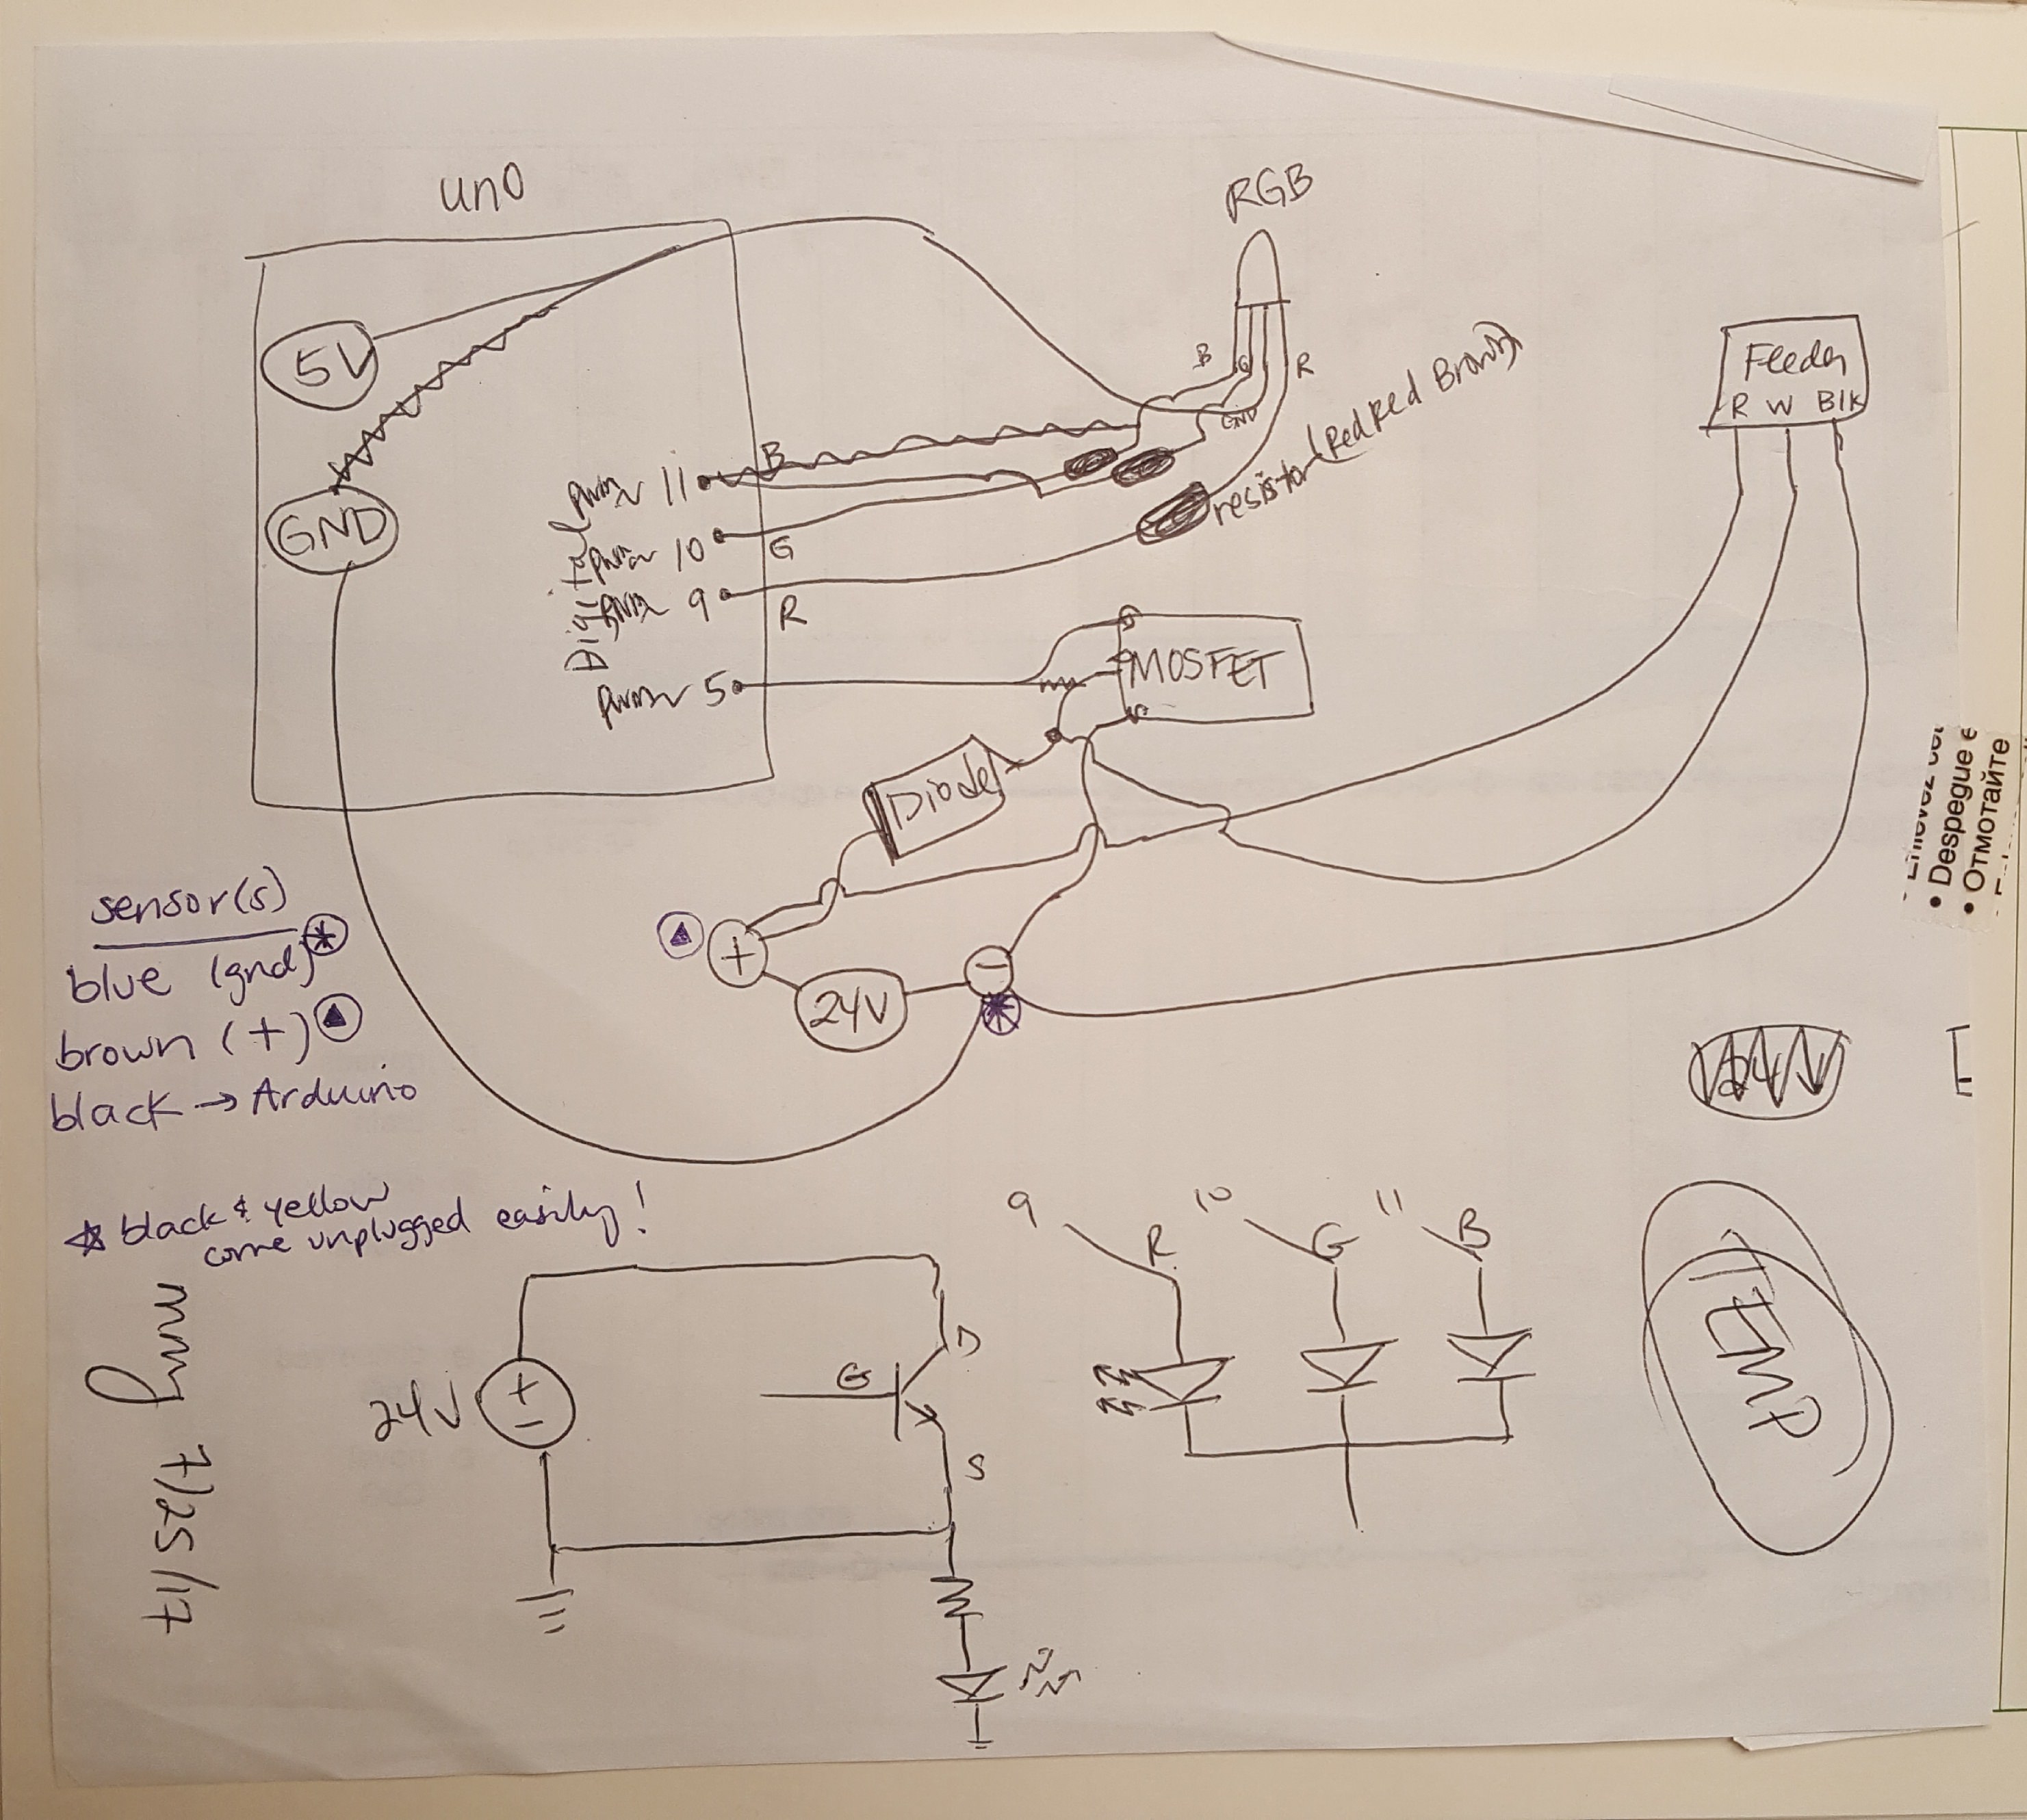 uno
RGB
5V
GND
B
G
GND
R
resistor (Red Red Brown)
Feeder
R W Blk
Digital
pwm 11
B
pwm 10
G
pwm 9
R
pwm 5
MOSFET
Diode
+
24V
−
sensor(s)
blue (gnd)
brown (+)
black → Arduino
black & yellow
come unplugged easily!
24V
• Despegue e
• Отмотайте
9
R
10
G
11
B
24V
+
−
G
D
S
TEMP
7/25/17